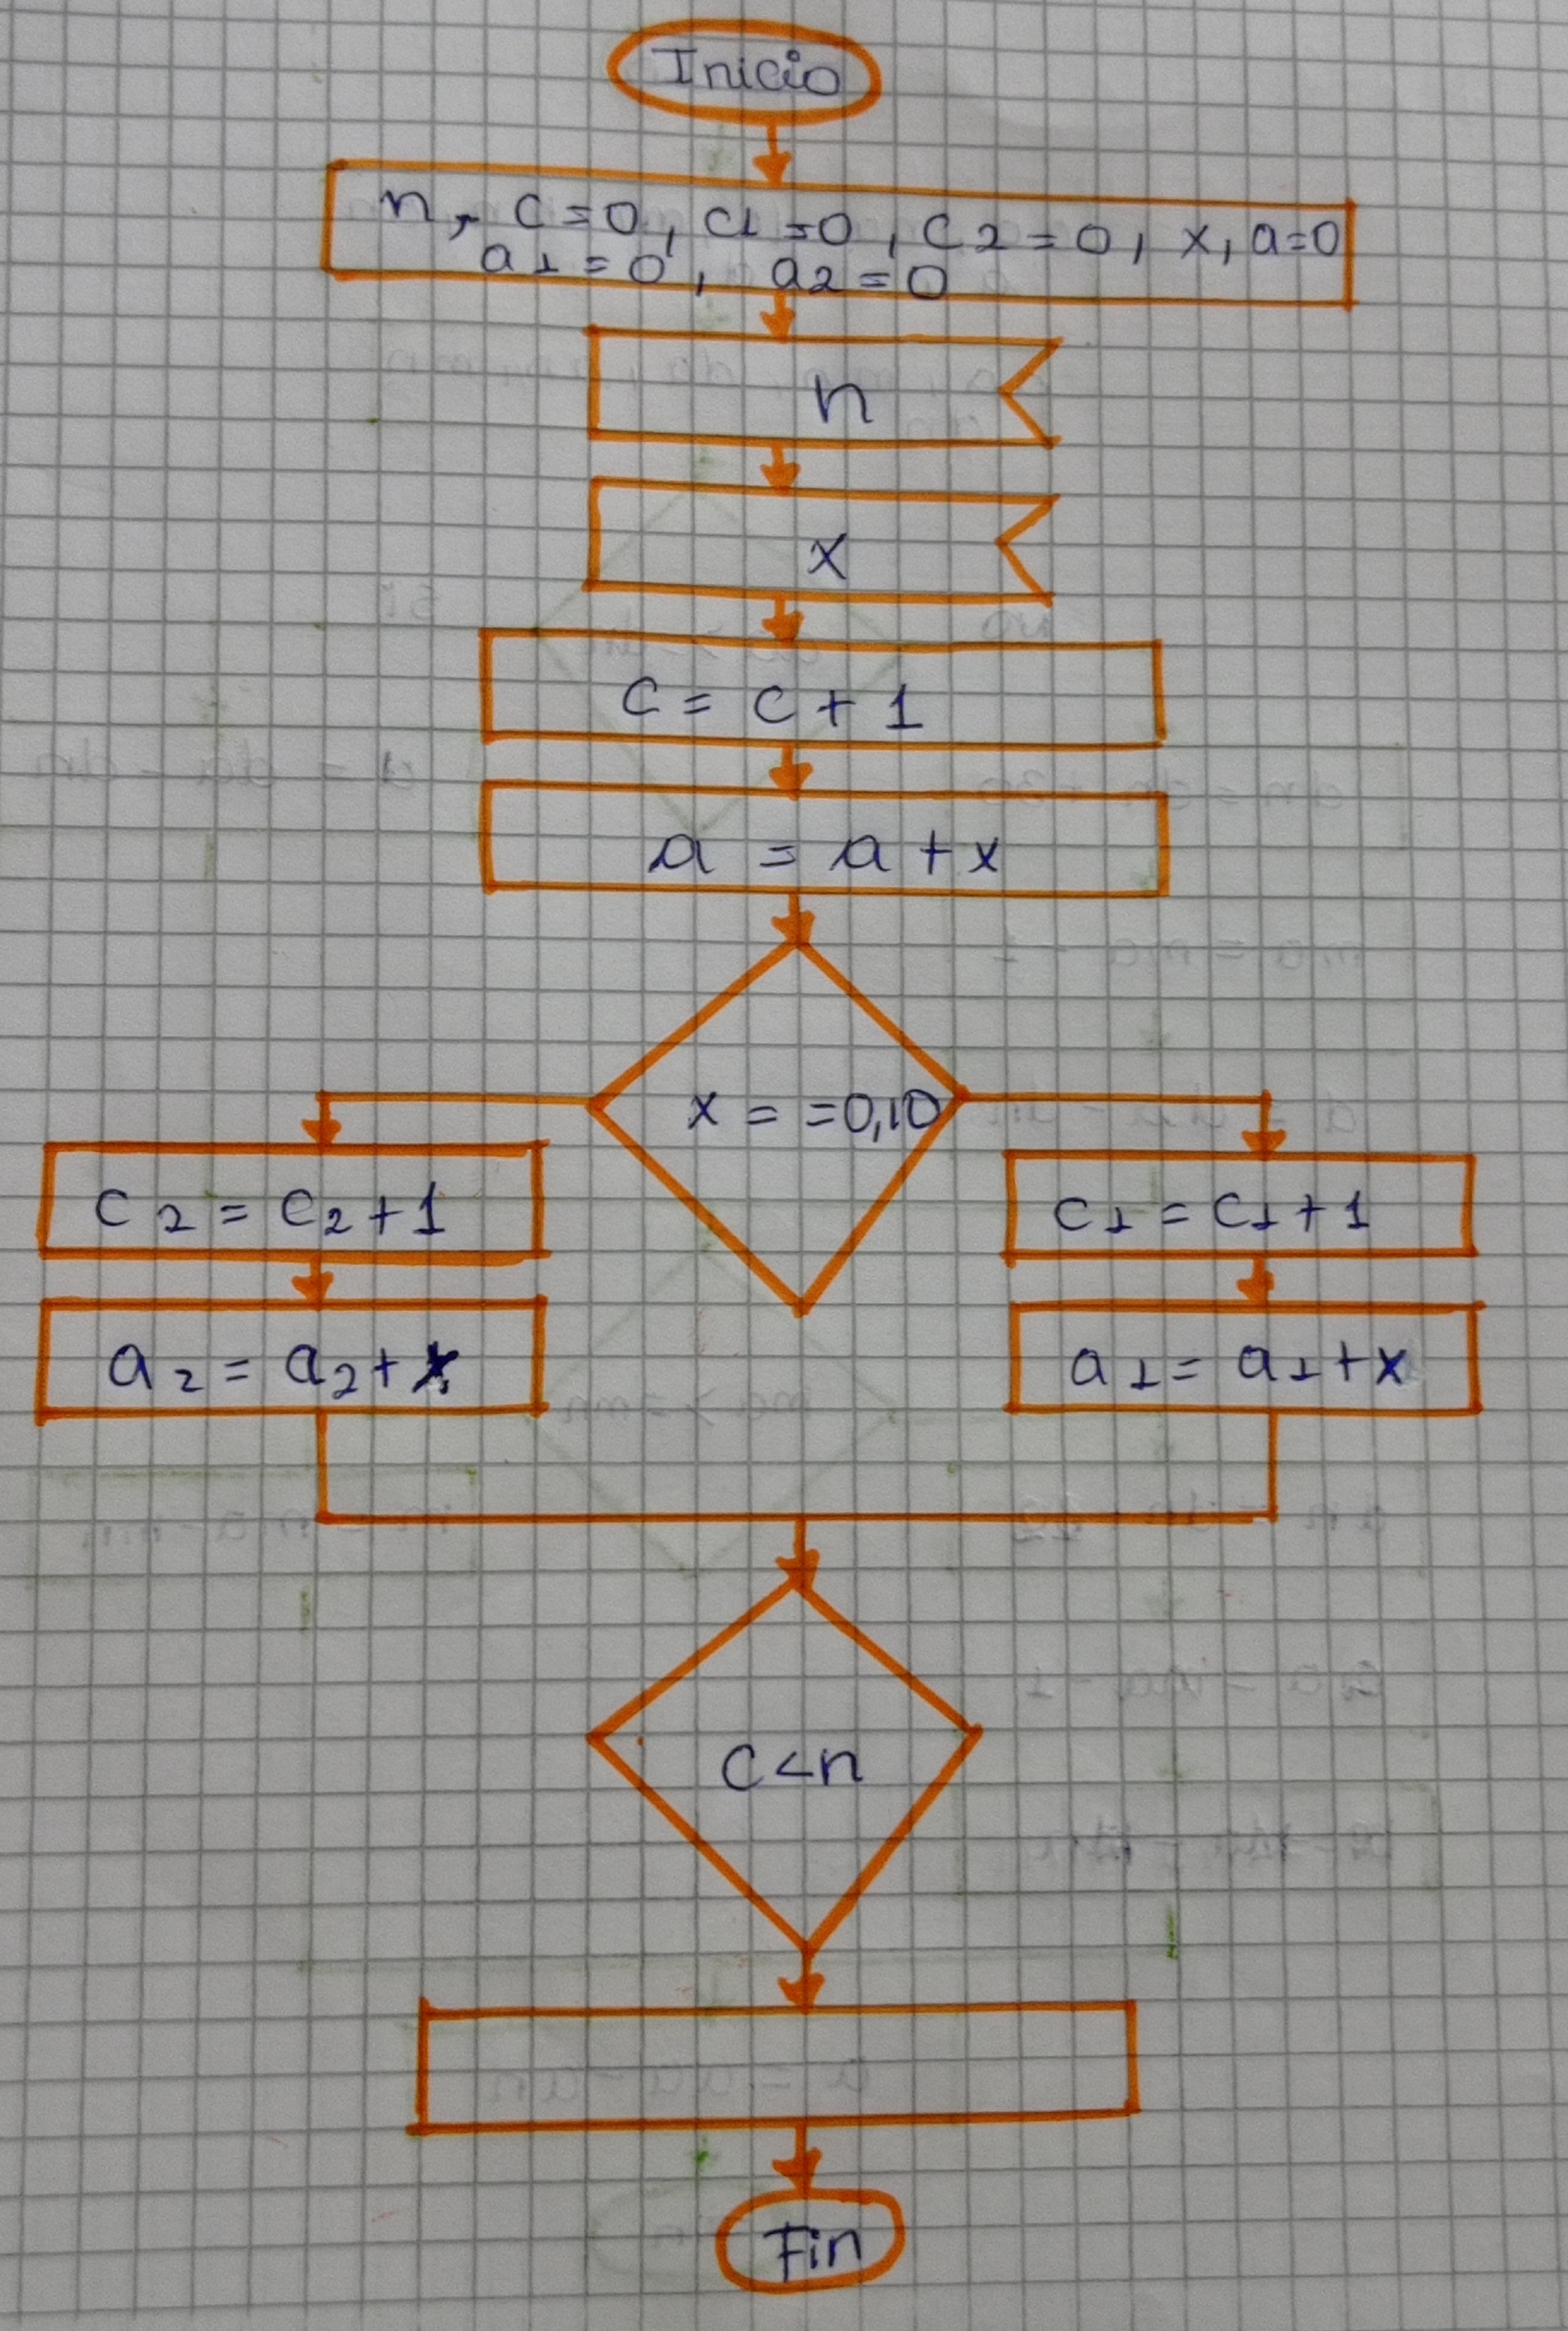 Inicio
n, c=0, c1=0, c2=0, x, a=0
a1=0, a2=0
n
x
c = c + 1
a = a + x
x = =0,10
c2 = c2+1
c1 = c1+1
a2 = a2+x
a1 = a1+x
c<n
Fin